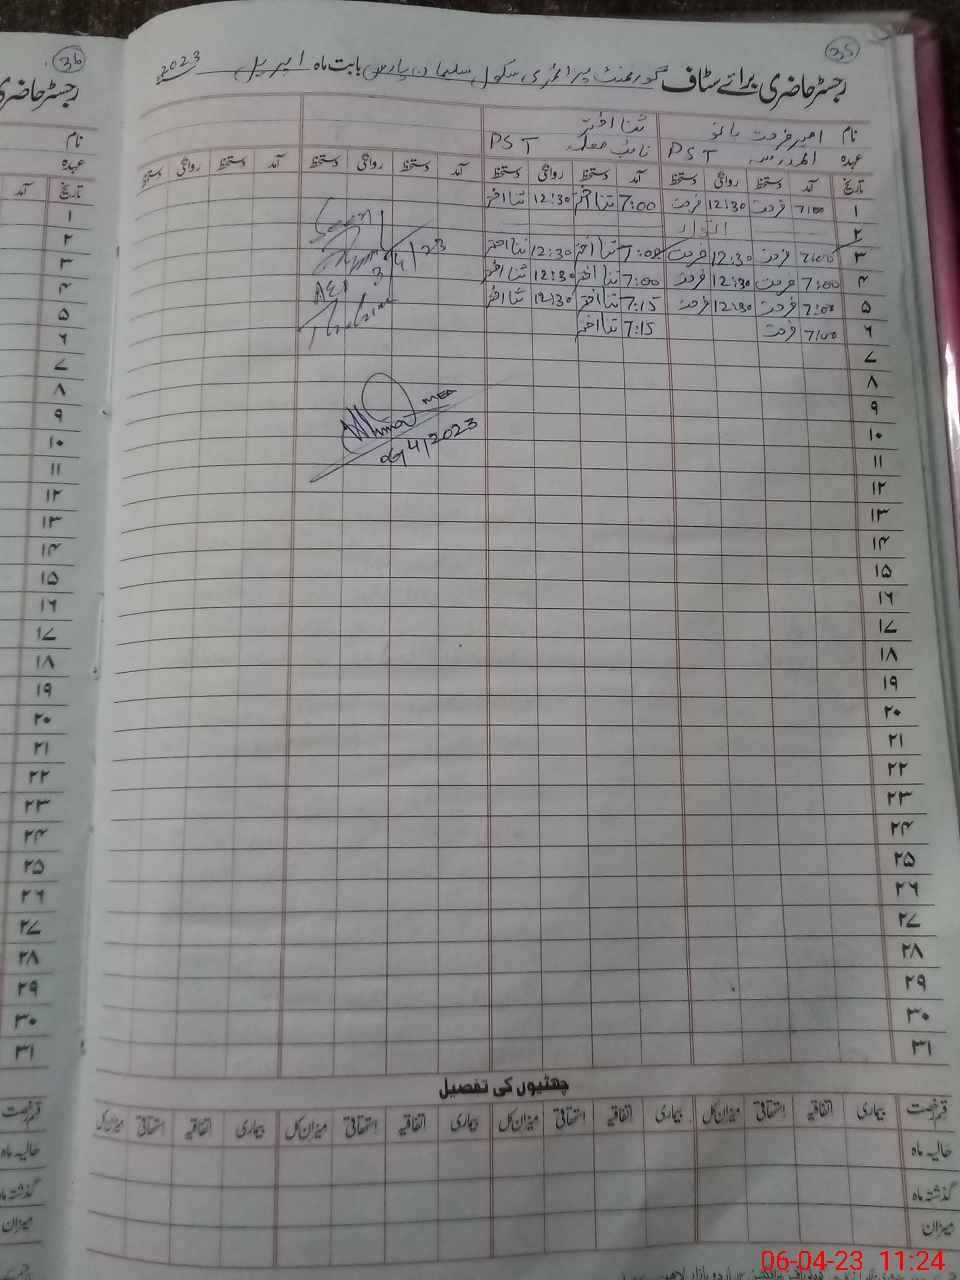 35
رجسٹر حاضری برائے سٹاف گورنمنٹ پرائمری سکول سلیمان پارس بابت ماہ اپریل 2023
نام فرحت بانو ثنا اختر
عہدہ PST نائب معلمہ PST
تاریخ آمد دستخط روانگی دستخط آمد دستخط روانگی دستخط آمد دستخط روانگی دستخط آمد دستخط روانگی دستخط
۱ 7:00 فرحت 12:30 فرحت 7:00 ثنا اختر 12:30 ثنا اختر
۲ اتوار
۳ 7:00 فرحت 12:30 فرحت 7:00 ثنا اختر 12:30 ثنا اختر
۴ 7:00 فرحت 12:30 فرحت 7:00 ثنا اختر 12:30 ثنا اختر
۵ 7:00 فرحت 12:30 فرحت 7:15 ثنا اختر 12:30 ثنا اختر
۶ 7:00 فرحت 7:15 ثنا اختر
3/4/23
AEO
۷
۸
MEA
۹
06/4/2023
۱۰
۱۱
۱۲
۱۳
۱۴
۱۵
۱۶
۱۷
۱۸
۱۹
۲۰
۲۱
۲۲
۲۳
۲۴
۲۵
۲۶
۲۷
۲۸
۲۹
۳۰
۳۱
چھٹیوں کی تفصیل
قسم رخصت بیماری اتفاقیہ استحقاقی میزان کل بیماری اتفاقیہ استحقاقی میزان کل بیماری اتفاقیہ استحقاقی میزان کل بیماری اتفاقیہ استحقاقی میزان کل
حالیہ ماہ
گذشتہ ماہ
میزان
36
رجسٹر حاضری
نام
عہدہ
تاریخ آمد
۱
۲
۳
۴
۵
۶
۷
۸
۹
۱۰
۱۱
۱۲
۱۳
۱۴
۱۵
۱۶
۱۷
۱۸
۱۹
۲۰
۲۱
۲۲
۲۳
۲۴
۲۵
۲۶
۲۷
۲۸
۲۹
۳۰
۳۱
قسم رخصت
حالیہ ماہ
گذشتہ ماہ
میزان
06-04-23 11:24